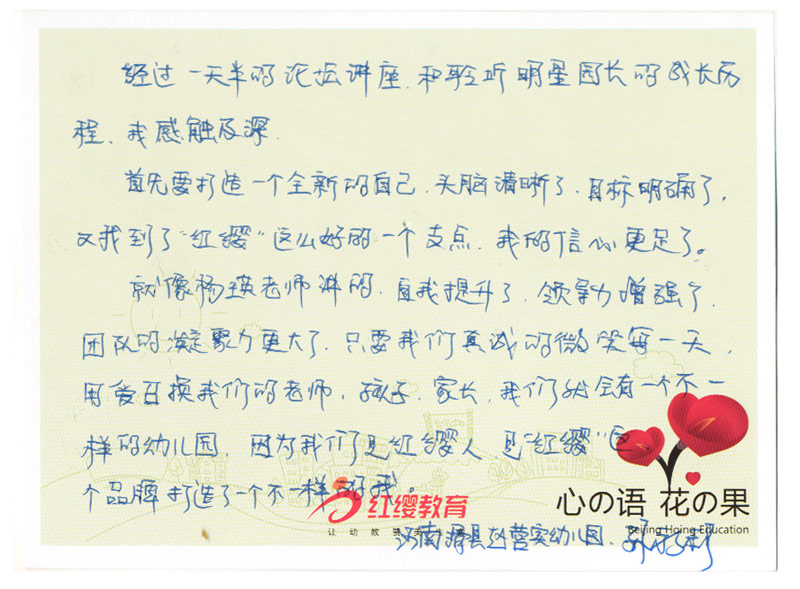 经过一天半的论坛讲座、和聆听明星园长的成长历
程、我感触及深.
首先要打造一个全新的自己.头脑清晰了.目标明确了.
又找到了“红缨”这么好的一个支点.我的信心更足了。
就像杨瑛老师讲的.自我提升了.领导力增强了.
团队的凝聚力更大了.只要我们真诚的微笑每一天.
用爱召换我们的老师.孩子.家长.我们就会有一个不一
样的幼儿园.因为我们是红缨人 是“红缨”这
个品牌打造了一个不一样的我。
红缨教育
让幼教
心の语 花の果
Beijing Hoing Education
河南滑县赵营实幼儿园.